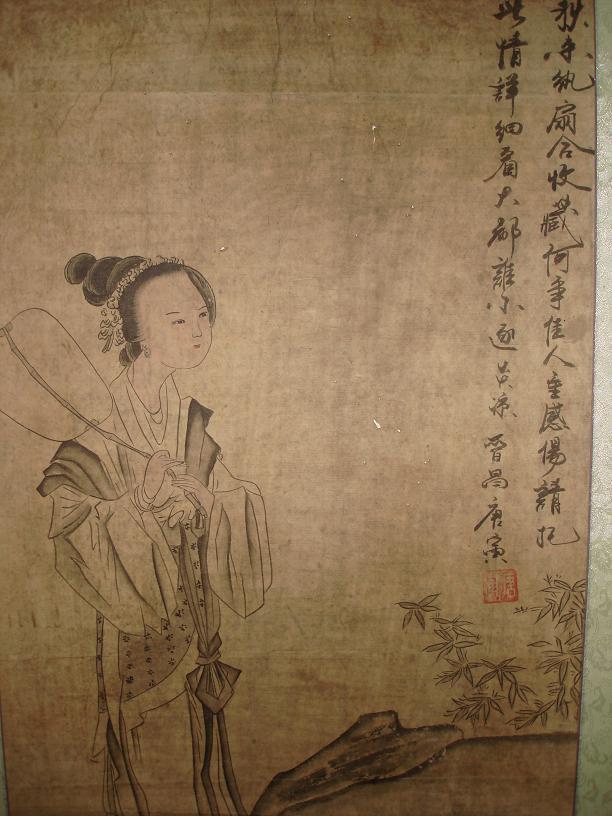 秋来紈扇合收藏何事佳人重感傷請把
世情詳細看大都誰不逐炎凉晉昌唐寅